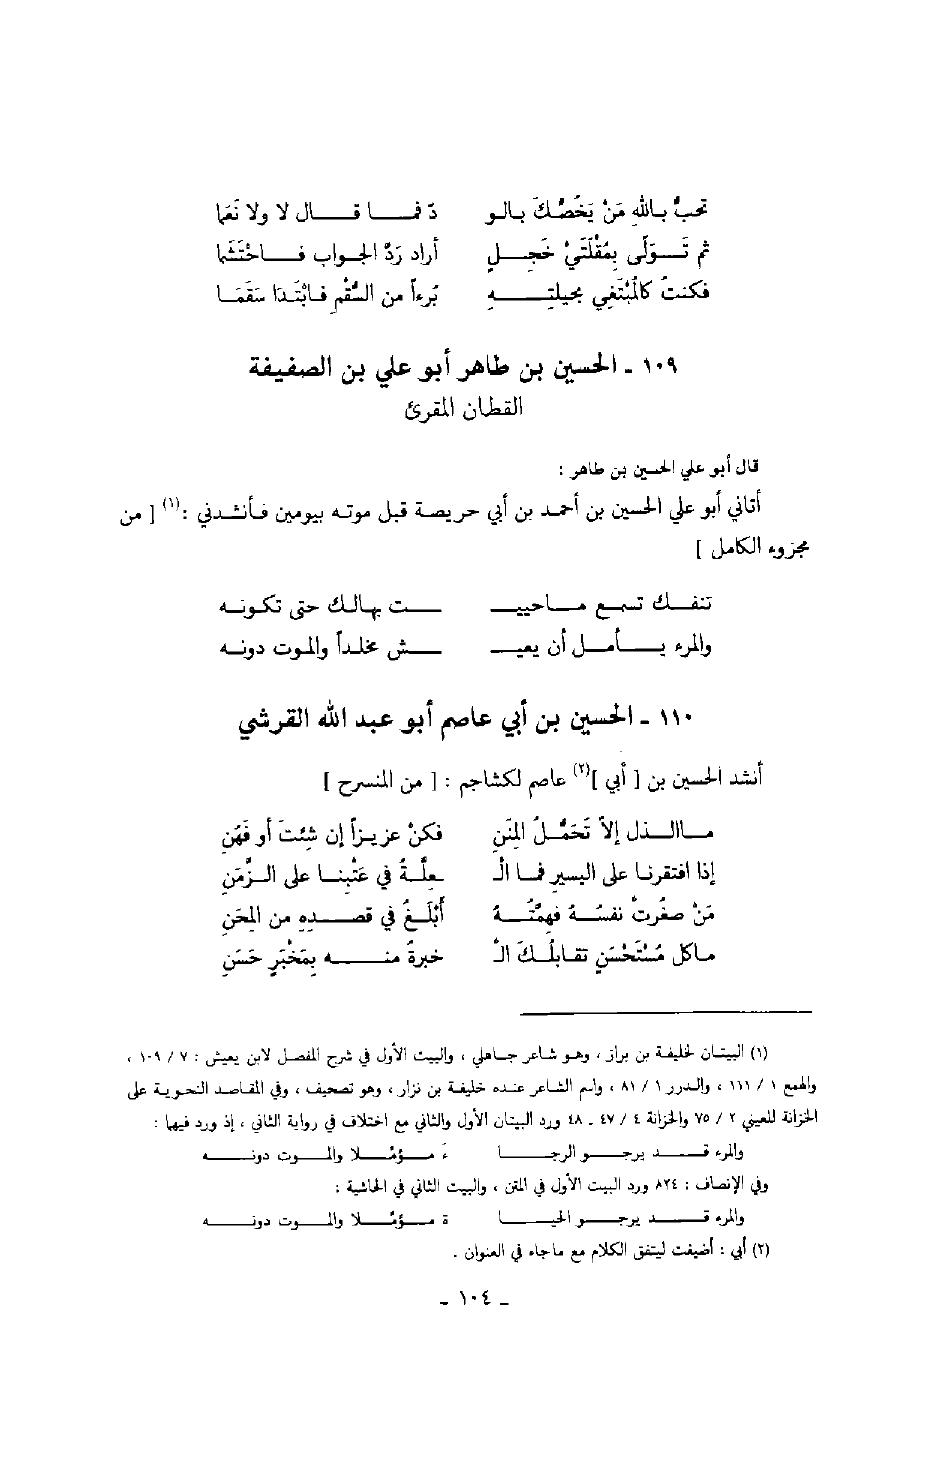 تحبُّ بـالله مَنْ يَخُصُّكَ بـالـو دّ فمـــا قـــال لا ولا نَعَما
ثم تَـــوَلَّى بِمُقْلَتَيْ خَجِـــلٍ أراد رَدَّ الجـواب فـــاحْتَشَما
فكنتُ كالمُبْتَغِي بحيلتِـــــــهِ بُرءاً من السُّقْمِ فـابْتَـدَا سَقَمَـا
١٠٩ ـ الحسين بن طاهر أبو علي بن الصفيفة
القطان المقرئ
قال أبو علي الحسين بن طاهر :
أتاني أبو علي الحسين بن أحمد بن أبي حريصة قبل موته بيومين فـأنشـدني :(١) [ من
مجزوء الكامل ]
تنفـــك تسمـع مـــاحييـــ ــــت بهالـك حتى تكـونــه
والمرء يـــــأمـــل أن يعيـــ ــــش مخلداً والمـوت دونــه
١١٠ ـ الحسين بن أبي عاصم أبو عبد الله القرشي
أنشد الحسين بن [ أبي ](٢) عاصم لكشاجم : [ من المنسرح ]
مـاالــــذل إلاّ تَحَمُّــلُ المِنَنِ فكنْ عزيـزاً إن شِئْـتَ أو فَهُنِ
إذا افتقرنـا على اليسيرِ فـــا الْـ ـعِلَّـــةُ في عَتْبِنـــا على الـــزَّمَنِ
مَنْ صغُرتْ نفسُـــهُ فهِمَّتُـــــهُ أَبْلَــغُ في قصــــــدِهِ من المِحَنِ
مـاكل مُسْتَحْسَنٍ تقـابلُـكَ الْـ خبرةُ منـــــــــه بِمَخْبَرٍ حَسَنِ
(١) البيتـان لخليفة بن براز ، وهـو شاعر جـاهلي ، والبيت الأول في شرح المفصل لابن يعيش : ٧ / ١٠٩ ،
والهمع ١ / ١١١ ، والـدرر ١ / ٨١ ، واسم الشاعر عنـده خليفـة بن نزار ، وهو تصحيف ، وفي المقـاصـد النحويـة على
الخزانة للعيني ٢ / ٧٥ والخزانة ٤ / ٤٧ ـ ٤٨ ورد البيتان الأول والثاني مع اختلاف في رواية الثاني ، إذ ورد فيها :
والمرء قـــــد يرجـــو الرجـــــا ءَ مـــؤمّـــلا والمـــوت دونــــــه
وفي الإنصاف : ٨٢٤ ورد البيت الأول في المتن ، والبيت الثاني في الحاشية :
والمرء قـــــد يرجـــو الحيـــــا ة مـــؤمّـــلا والمـــوت دونــــــه
(٢) أبي : أضيفت ليتفق الكلام مع ماجاء في العنوان .
ـ ١٠٤ ـ